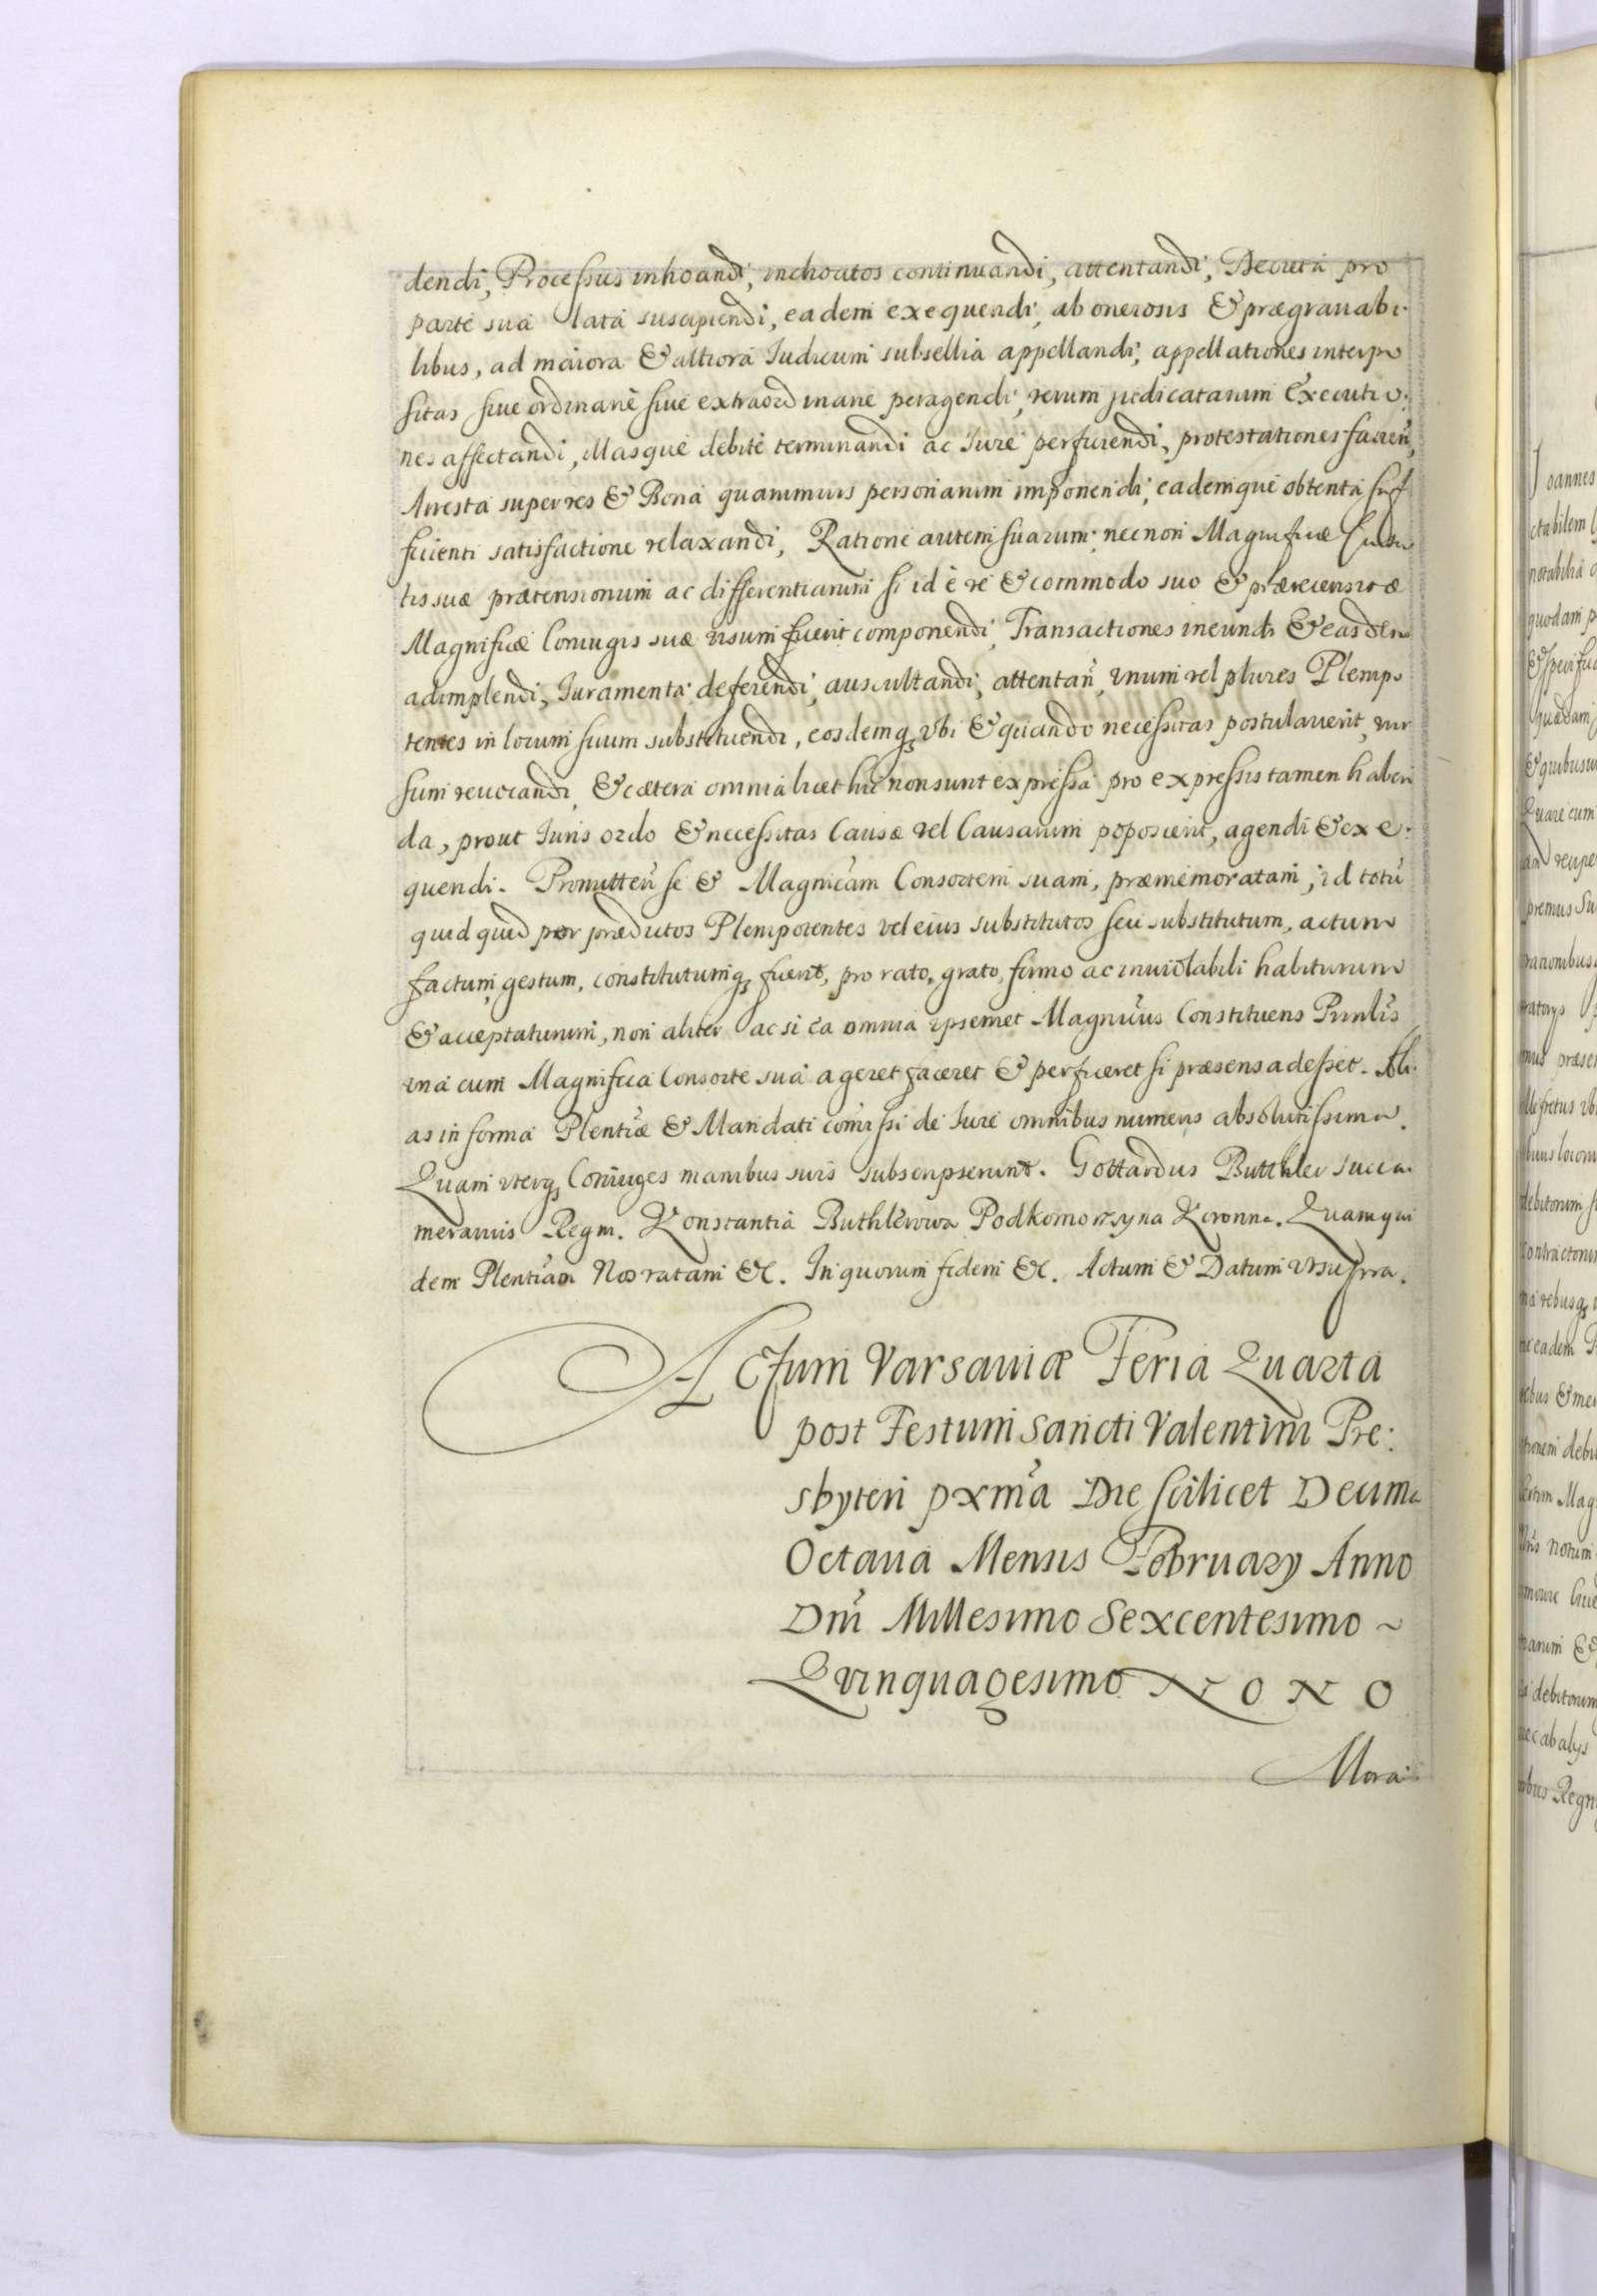 dendi, Processus inhoandi, inchoatos continuandi, attentandi, Decreta pro
parte sua lata suscipiendi, eadem exequendi, ab onerosis & prægrauabi-
libus, ad maiora & altiora Iudicum subsellia appellandi, appellationes interpo
sitas siue ordinarie siue extraordinarie peragendi, rerum judicatarum Executio-
nes affectandi, illasque debite terminandi ac Iure perficiendi, protestationes facien̄,
Arresta super res & Bona quarumuis personarum imponendi, eademque obtenta suf
ficienti satisfactione relaxandi, Ratione autem suarum, necnon Magnificæ
tis suæ prætensionum ac differentiarum si id è re & commodo suo & præreciensitæ
Magnificæ Coniugis suæ visum fuerit componendi, Transactiones ineundi & easdem
adimplendi, Iuramenta deferendi, auscultandi, attentan̄, vnum vel plures Plenipo
tentes in locum suum substituendi, eosdemq₃ vbi & quando necessitas postulauerit, rur
sum reuocandi, & cætera omnia licet hic non sunt expressa pro expressis tamen haben
da, prout Iuris ordo & necessitas Causæ vel Causarum poposcerit, agendi & exe-
quendi. Promitten̄ se & Magnicam Consortem suam, præmemoratam, id totū
quid quid per prædictos Plenipotentes vel eius substitutos seu substitutum, actum
factum, gestum, constitutumq₃ fuerit, pro rato, grato, firmo ac inuiolabili habiturum
& acceptaturum, non aliter ac si ea omnia ipsemet Magnicus Constituens Prinlis
vna cum Magnifica Consorte sua ageret faceret & perficeret si præsens adesset. Ali-
as in forma Plentiæ & Mandati comissi de Iure omnibus numeris absolutissima.
Quam vterq₃ Coniuges manibus suis subscripserunt. Gottardus Butthler succa-
merarius Regni. Konstantia Buthlerowa Podkomorzyna Koronna. Quamqui
dem Plentiam Nos ratam &c. In quorum fidem &c. Actum & Datum vt supra.
Actum Varsauiæ Feria Quarta
post Festum Sancti Valentini Pre-
sbyteri pxma Die scilicet Decima
Octaua Mensis February Anno
Dni Millesimo Sexcentesimo ~
Quinquagesimo NONO
Mora